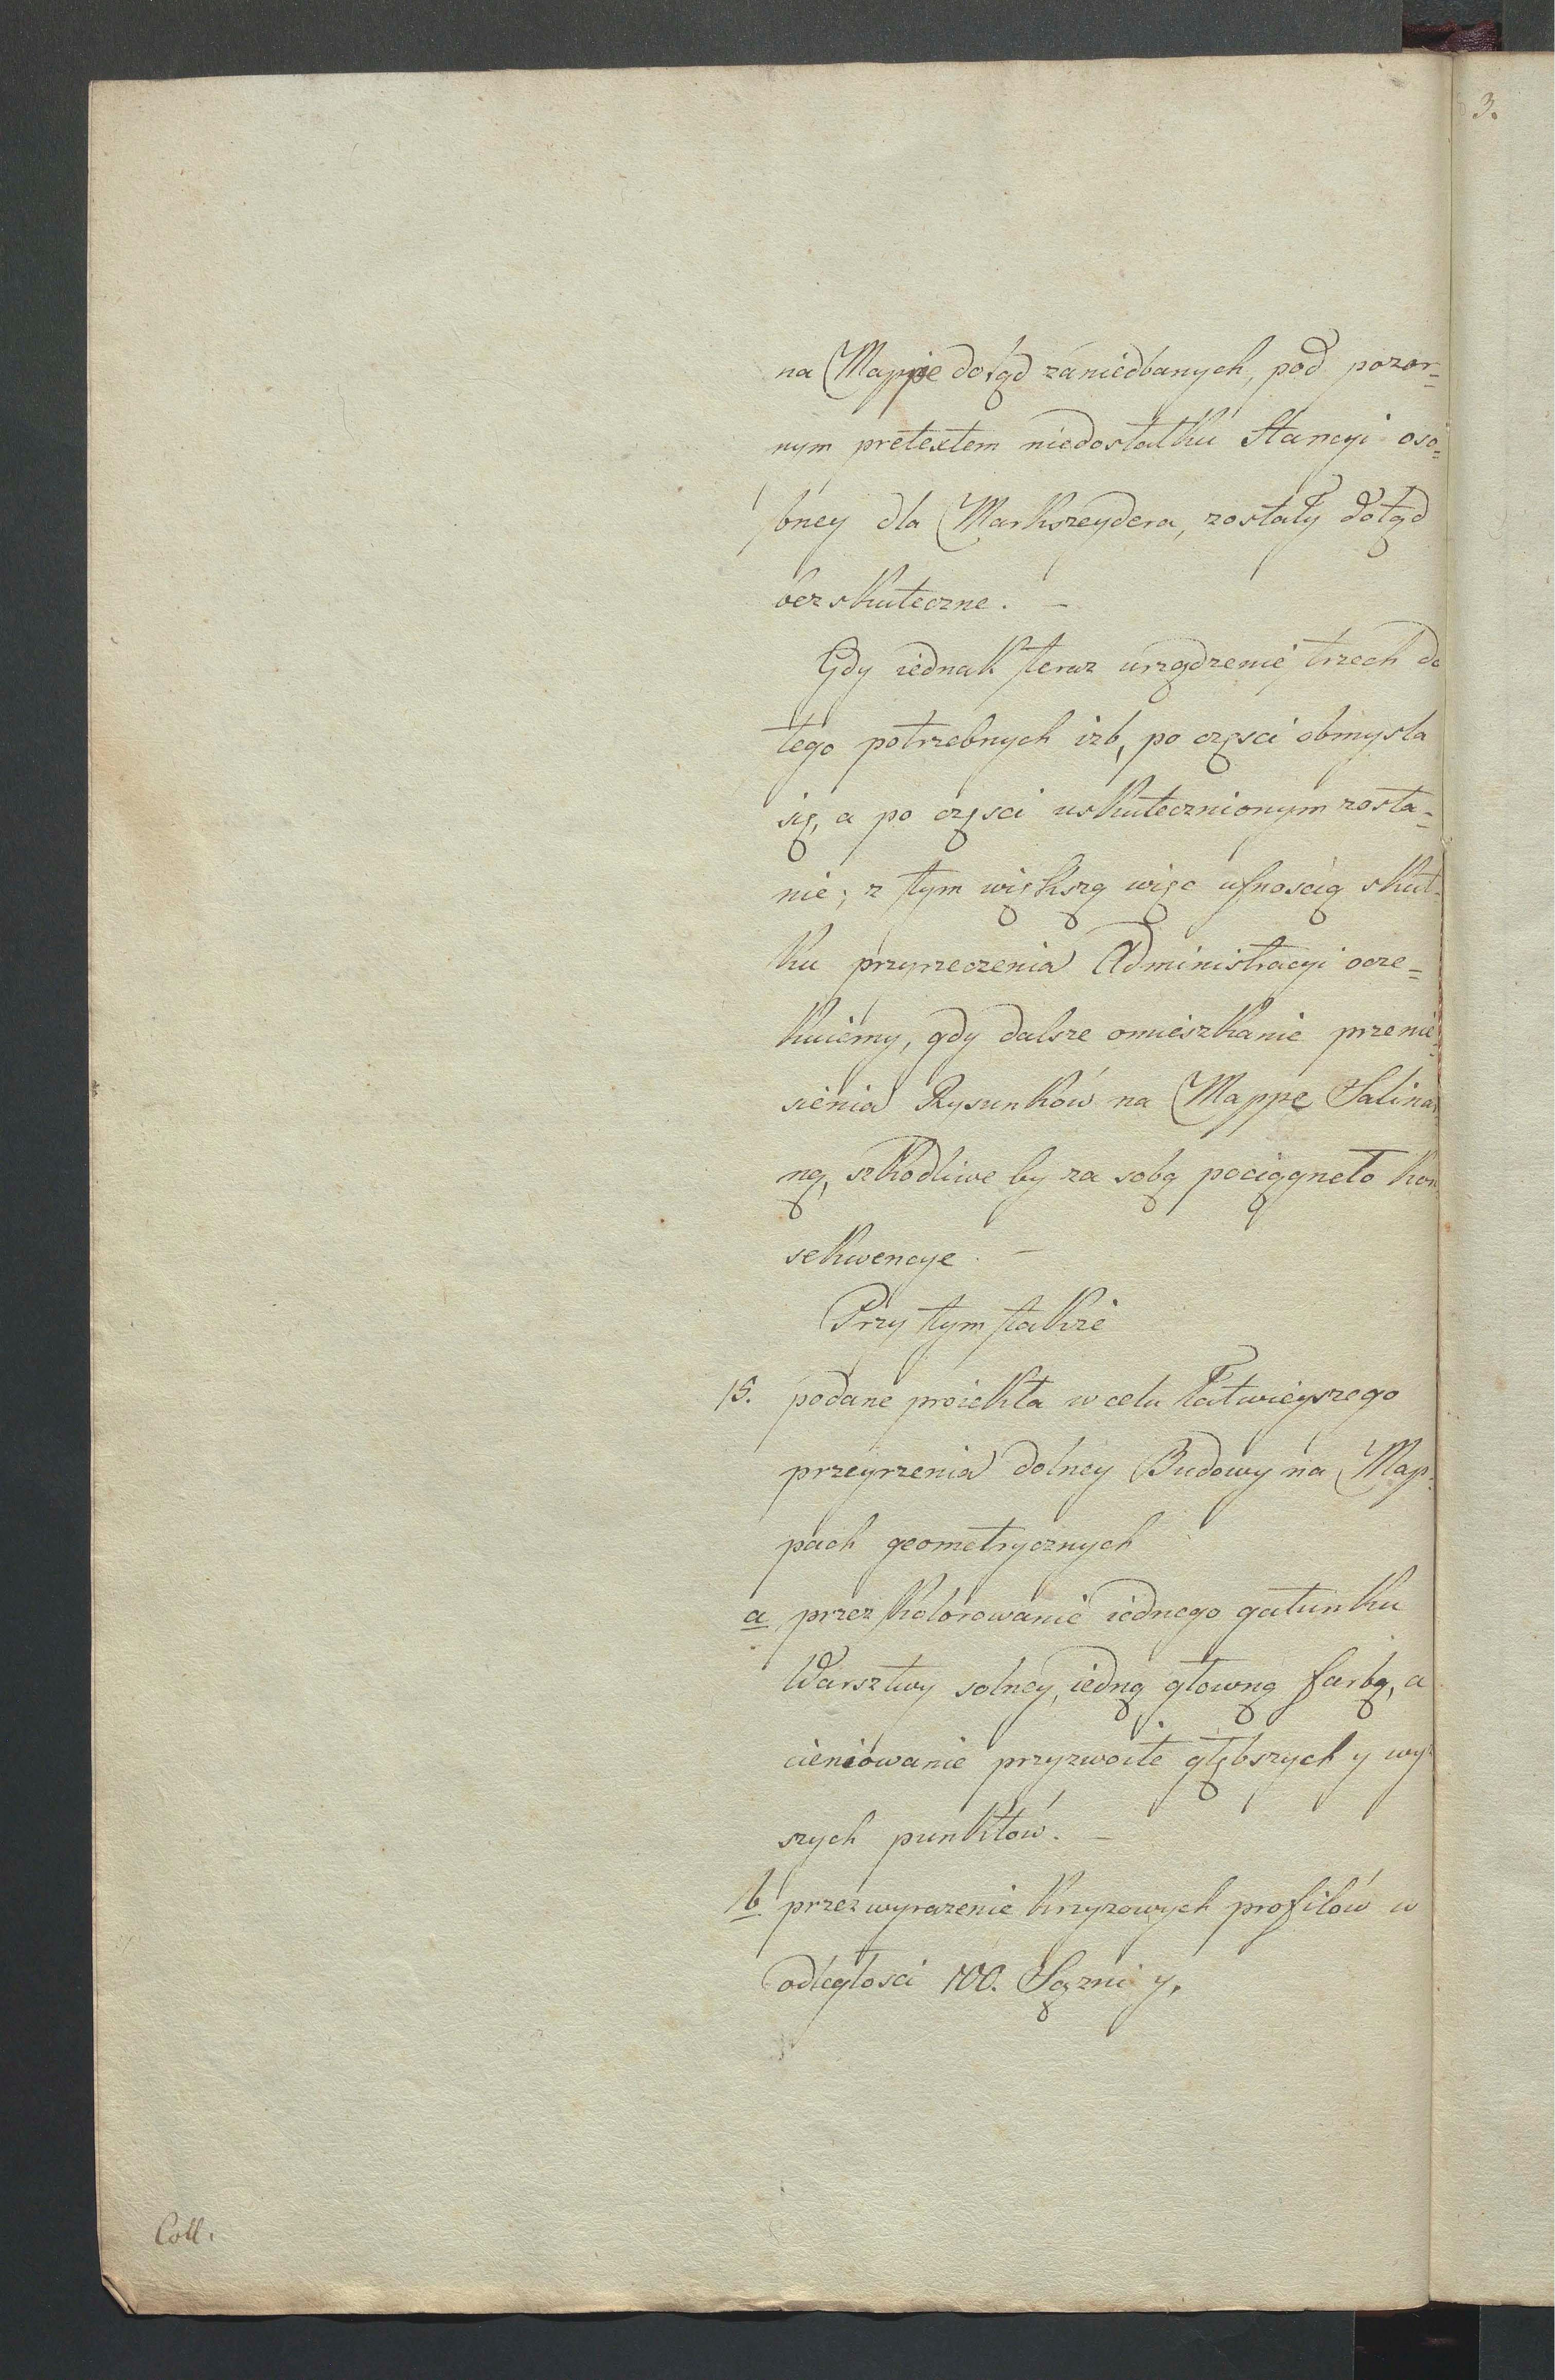 3.
na Mappie dotąd zaniedbanych, pod pozor=
nym pretextem niedostatku Stancyi oso=
bney dla Markszeydera, zostały dotąd
bezskuteczne. –
Gdy iednak teraz urządzenie trzech do
tego potrzebnych izb, po części obmysla
się, a po części uskutecznionym zosta=
nie; z tym większą więc ufnością skut=
ku przyrzeczenia Administracyi ocze=
kuiemy, gdy dalsze omieszkanie przenie=
sienia Rysunków na Mappę Salinar
ną, szkodliwe by za sobą pociągneło kon
sekwencye. –
Przy tym także
15. podane proiekta w celu łatwieyszego
przeyrzenia dolney Budowy na Map=
pach geometrycznych
a przez kolorowanie iednego gatunku
Warsztwy solney, iedną głowną farbą, a
cieniowanie przyzwoite głębszych y wyż
szych punktow. –
b przez wyrazenie Krzyzowych profilów w
odległosci 100. Sążni y,
Coll.